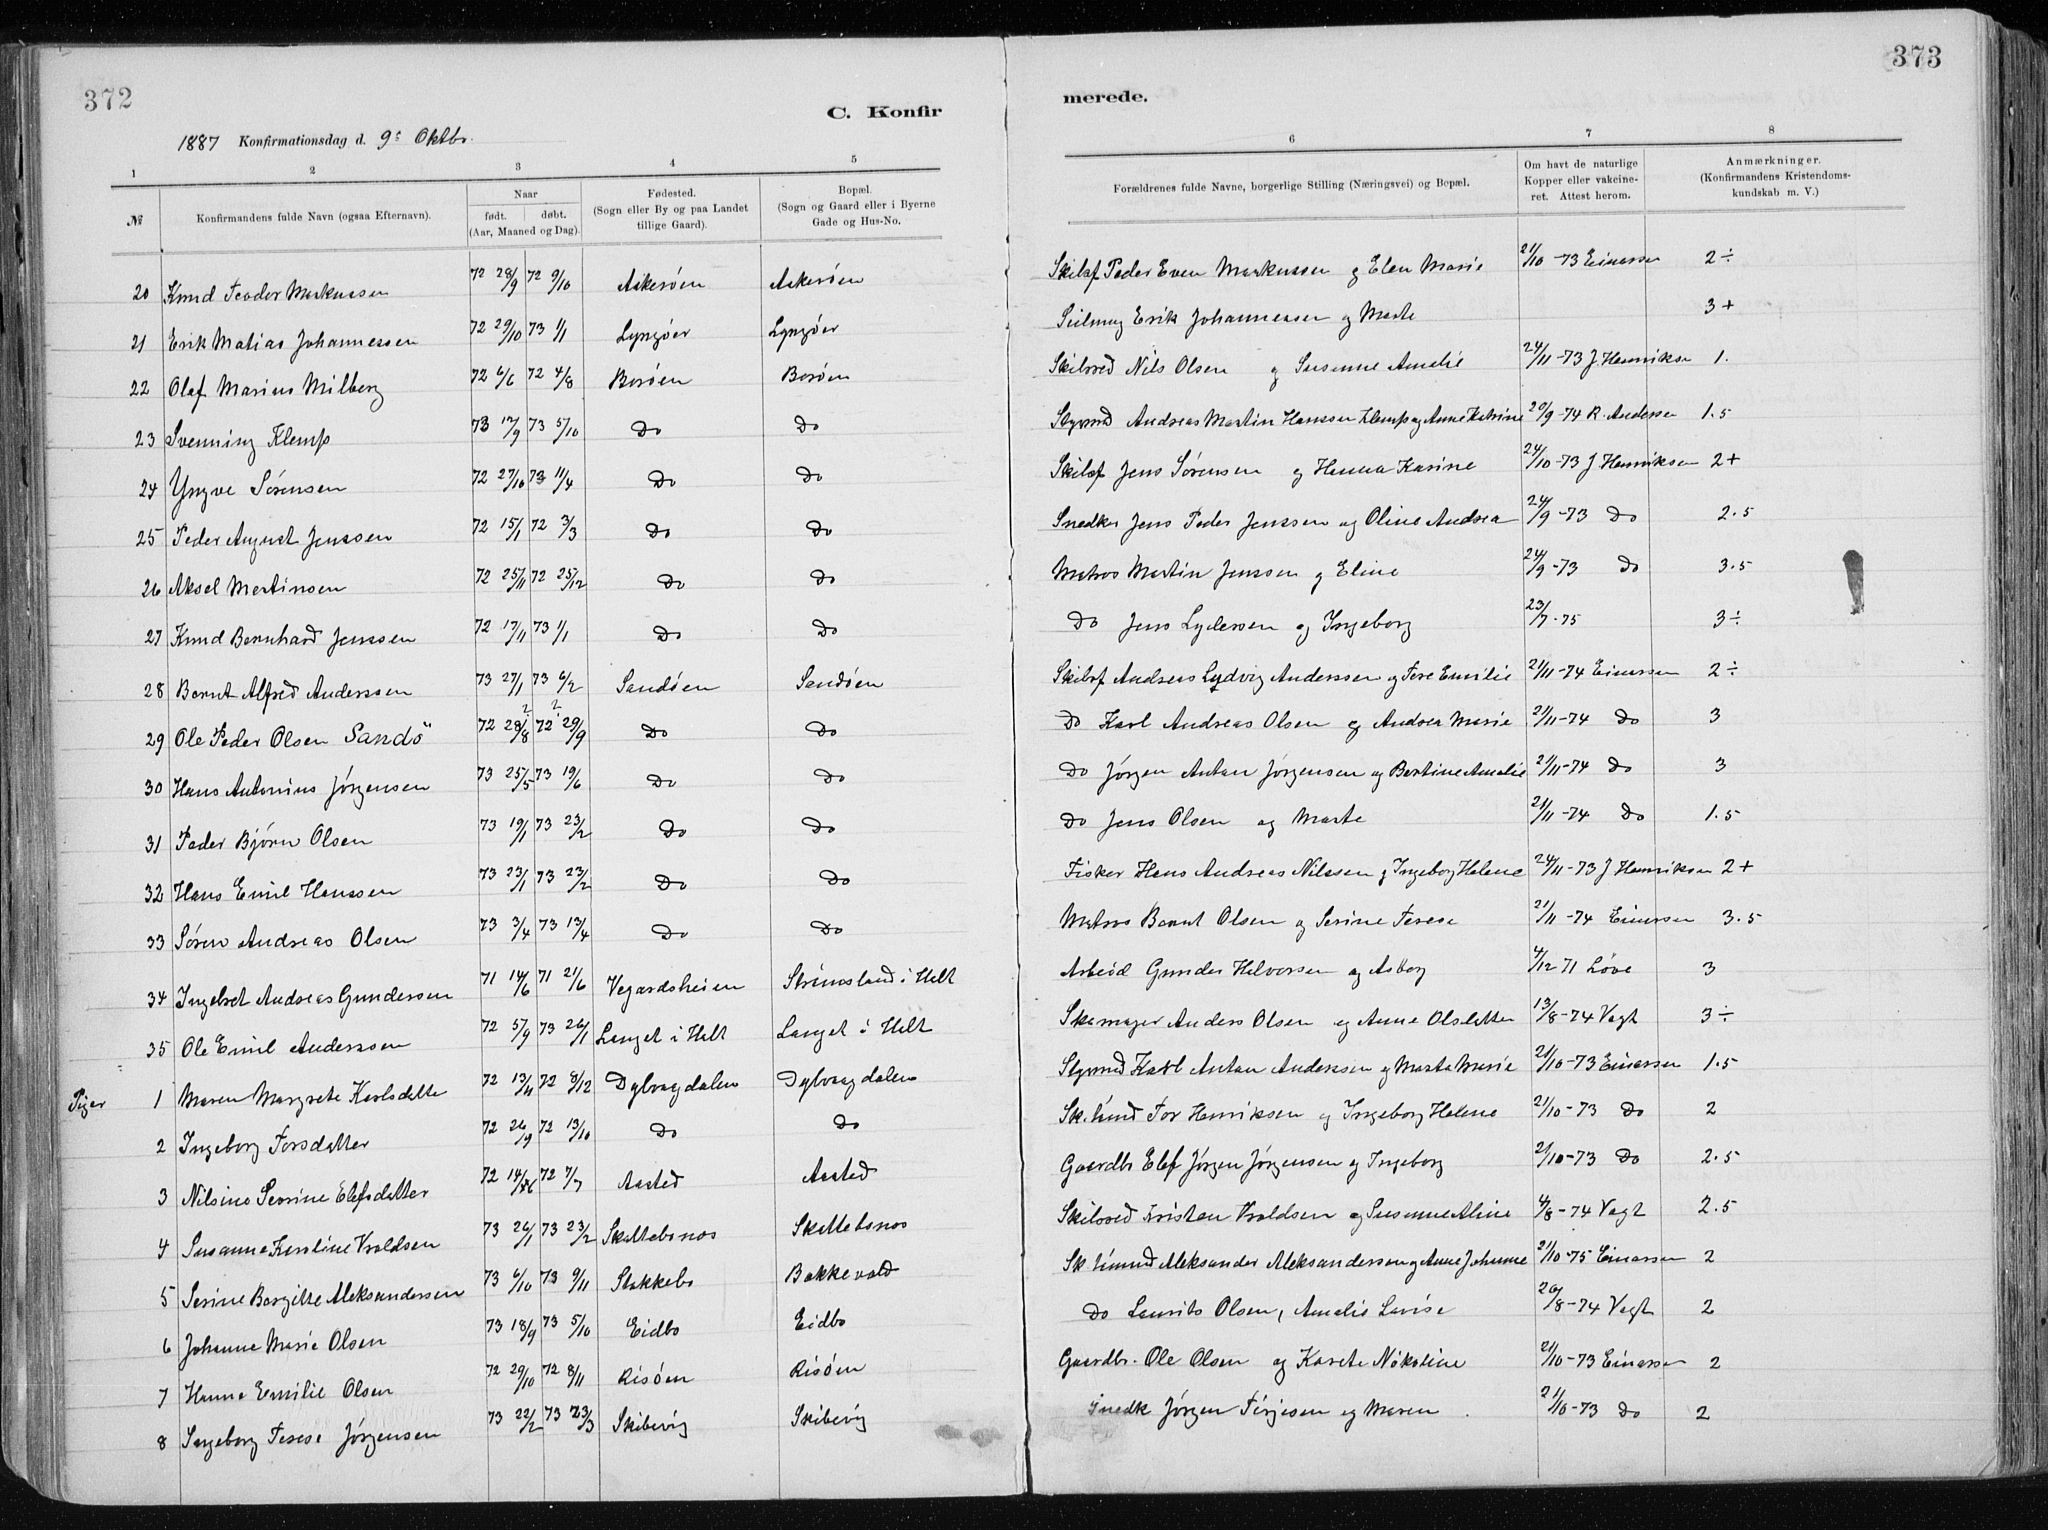 372
373
C. Konfir
merede.
1887 Konfirmationsdag d. 9s Oktbr.
1 2 3 4 5 6 7 8
№ Konfirmandens fulde Navn (ogsaa Efternavn). Naar født. døbt. (Aar, Maaned og Dag). Fødested. (Sogn eller By og paa Landet tillige Gaard). Bopæl. (Sogn og Gaard eller i Byerne Gade og Hus-No. Forældrenes fulde Navne, borgerlige Stilling (Næringsvei) og Bopæl. Om havt de naturlige Kopper eller vakcineret. Attest herom. Anmærkninger. (Konfirmandens Kristendomskundskab m. V.)
20 Knud Teodor Markussen 72 28/9 72 9/10 Askerøen Askerøen Skibsf Peder Even Markussen og Elen Marie 21/10 -73 Einarsen 2÷
21 Erik Matias Johannessen 72 29/10 73 1/1 Lyngøer Lyngøer Seilmag Erik Johannessen og Marte 3+
22 Olaf Marius Milberg 72 6/6 72 4/8 Borøen Borøen Skibsred Nils Olsen og Susanne Amalie 24/11 -73 J. Henriksen 1.
23 Svenning Klemp 73 17/9 73 5/10 Do Do Styrmd Andreas Martin Hanssen Klemp og Anne Katrine 20/9 -74 R. Andersen 1.5
24 Yngve Sørensen 72 27/10 73 11/4 Do Do Skibsf Jens Sørensen og Hanna Karine 24/10 -73 J Henriksen 2+
25 Peder August Jenssen 72 15/1 72 3/3 Do Do Snedker Jens Peder Jenssen og Oline Andrea 24/9 -73 Do 2.5
26 Aksel Martinsen 72 25/11 72 25/12 Do Do Matros Martin Jenssen og Eline 24/9 -73 Do 3.5
27 Knud Bernhard Jenssen 72 17/11 73 1/1 Do Do Do Jens Lydersen og Ingeborg 23/7 -75 3÷
28 Bernt Alfred Anderssen 73 27/1 73 6/2 Sandøen Sandøen Skibsf Andreas Lydvig Anderssen og Tere Emilie 21/11 -74 Einarsen 2÷
29 Ole Peder Olsen Sandö 72 28/8 72 29/9 Do Do Do Karl Andreas Olsen og Andrea Marie 21/11 -74 Do 3
30 Hans Antonius Jørgensen 73 25/5 73 19/6 Do Do Do Jørgen Antan Jørgensen og Bertine Amalie 21/11 -74 Do 3
31 Peder Bjørn Olsen 73 19/1 73 23/2 Do Do Do Jens Olsen og Marte 21/11 -74 Do 1.5
32 Hans Emil Hanssen 73 23/1 73 23/2 Do Do Fisker Hans Andreas Nilssen og Ingeborg Helene 24/11 -73 J Henriksen 2+
33 Søren Andreas Olsen 73 3/4 73 13/4 Do Do Matros Bernt Olsen og Serine Terese 21/11 -74 Einarsen 3.5
34 Ingebret Andreas Gundersen 71 14/6 71 21/6 Vegardsheien Strømsland i Holt Arbeid Gunder Halvorsen og Asborg 4/12 71 Løve 3
35 Ole Emil Anderssen 72 5/9 73 26/1 Langet i Holt Langet i Holt Skomager Anders Olsen og Anne Olsdatter 13/8 -74 Vogt 3÷
Piger 1 Maren Margrete Karlsdatter 72 13/4 72 8/12 Dybvagdalen Dybvagdalen Styrmd Karl Antan Anderssen og Marta Marie 21/10 -73 Einarsen 1.5
2 Ingeborg Torsdatter 72 26/9 72 13/10 Do Do Sk.tmmd Tor Henriksen og Ingeborg Helene 21/10 -73 Do 2
3 Nilsine Severine Elefsdatter 72 14/6 72 7/7 Aasted Aasted Gaardbr Elef Jørgen Jørgensen og Ingeborg 21/10 -73 Do 2.5
4 Susanne Karoline Vroldsen 73 26/1 73 23/2 Skattebonos Skattebonos Skibsred Kristen Vroldsen og Susanne Aline 4/8 -74 Vogt 2.5
5 Serine Borgitte Aleksandersen 73 6/10 73 9/11 Stakkebo Bakkevold Sk tmmd Aleksander Aleksanderssen og Anne Johanne 21/10 -75 Einarsen 2
6 Johanne Marie Olsen 73 18/9 73 5/10 Eidbo Eidbo Do Laurits Olsen, Amalie Lovise 20/8 -74 Vogt 2
7 Hanna Emilie Olsen 72 29/10 72 8/11 Risøen Risøen Gaardbr. Ole Olsen og Karete Nikoline 21/10 -73 Einarsen 2
8 Ingeborg Terese Jørgensen 73 22/2 73 23/3 Skibevig Skibevig Snedk Jørgen Terjesen og Maren 21/10 -73 Do 2